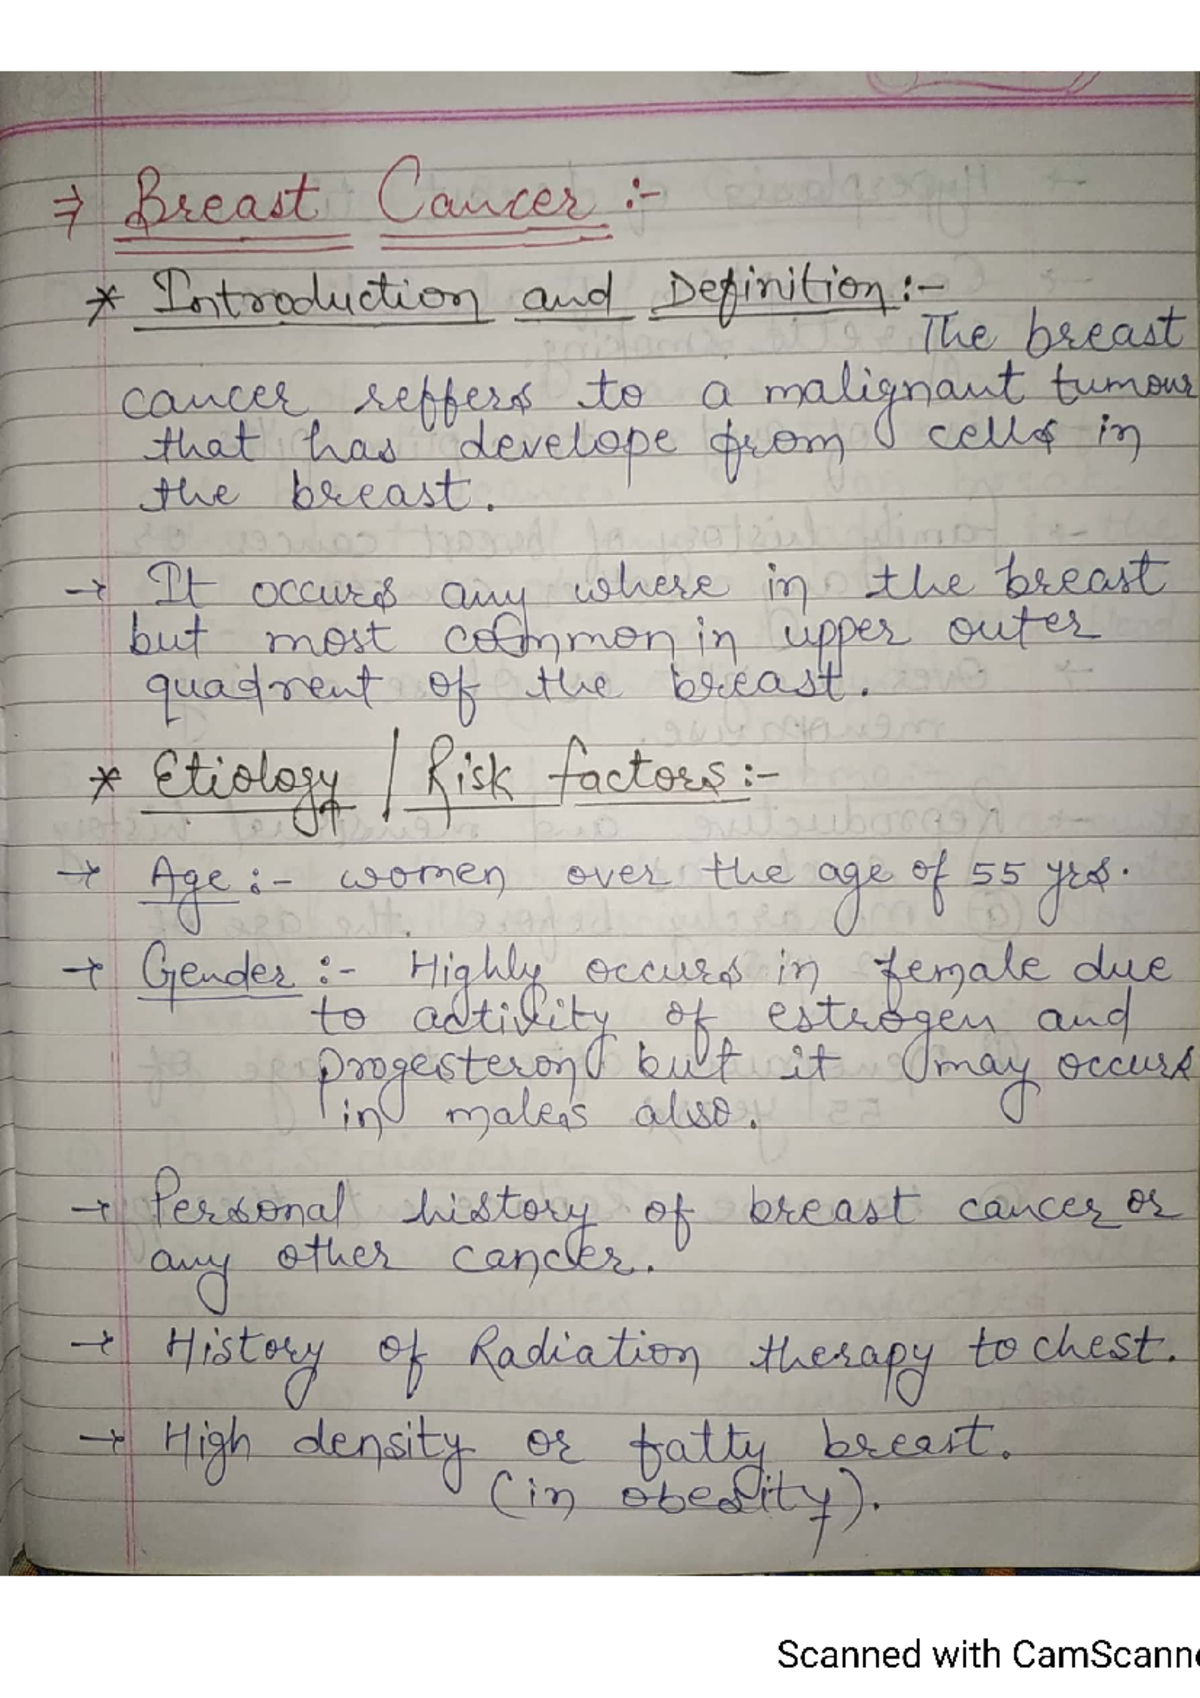 ⇒ Breast Cancer :-
* Introduction and Definition :-
The breast
cancer reffers to a malignant tumour
that has develope from cells in
the breast.
→ It occurs any where in the breast
but most common in upper outer
quadrent of the breast.
* Etiology / Risk factors :-
→ Age :- women over the age of 55 yrs.
→ Gender :- Highly occurs in female due
to activity of estrogen and
progesteron but it may occurs
in males also.
→ Personal history of breast cancer or
any other cancer.
→ History of Radiation therapy to chest.
→ High density or fatty breast.
(in obesity).
Scanned with CamScanne